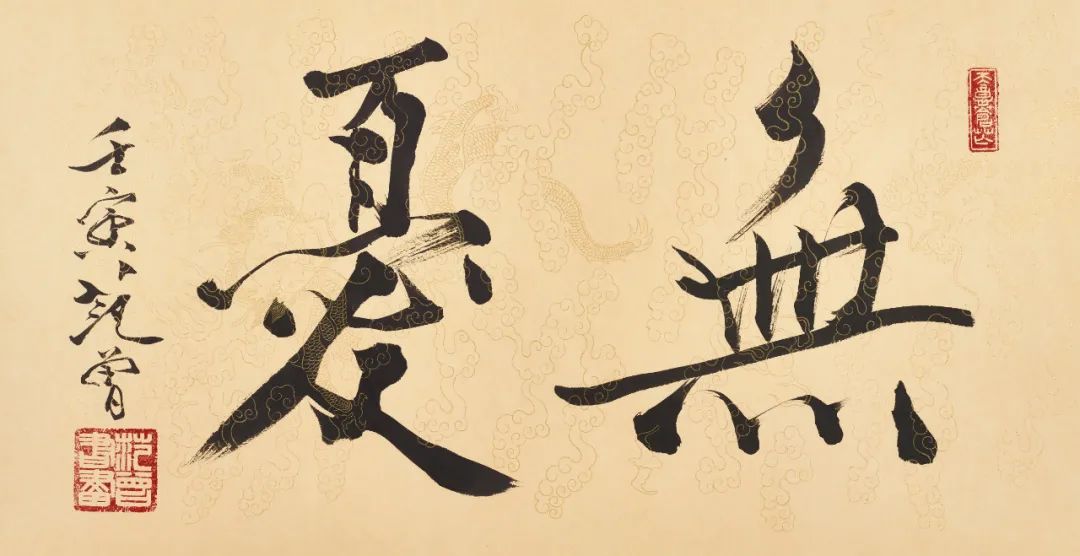 無憂
壬寅范曾
范曾
書畫